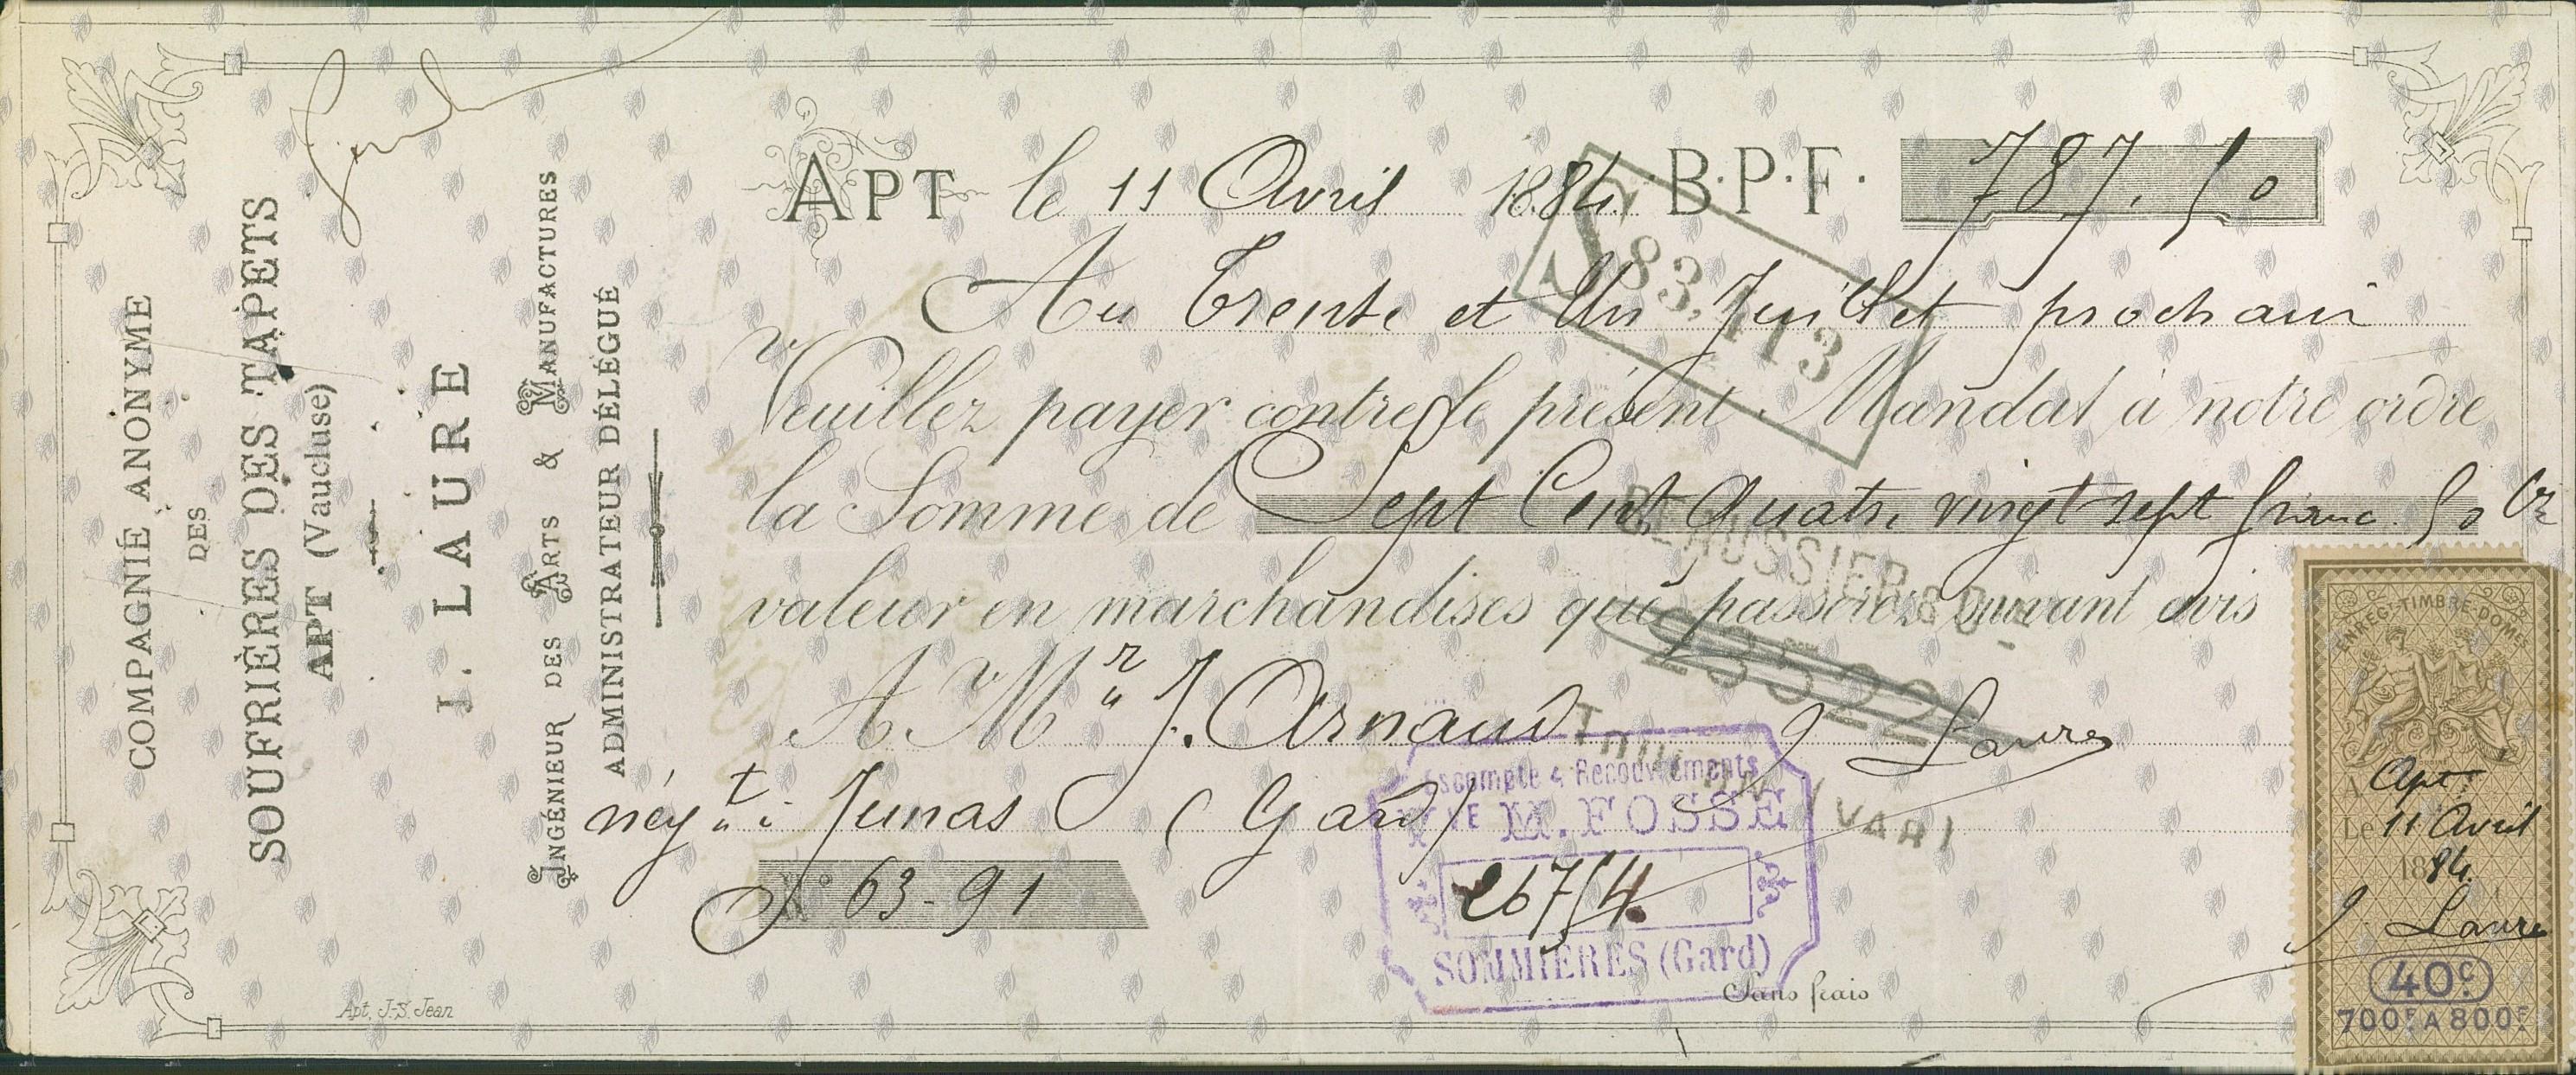 COMPAGNIE ANONYME
DES
SOUFRIÈRES DES TAPETS
APT (Vaucluse)
J. LAURE
INGÉNIEUR DES ARTS & MANUFACTURES
ADMINISTRATEUR DÉLÉGUÉ
APT le 11 Avril 1884. B.P.F. 787.50
Au Trente et Un Juillet prochain
Veuillez payer contre le présent Mandat à notre ordre
la Somme de Sept Cent Quatre vingt sept franc 50 Cs
valeur en marchandises que passerez suivant avis
A Mr J. Arnaud
négt. Junas (Gard)
J Laure
N° 63-91
83,113
BLAUSSIER & C
23522
TOULON (VAR)
Escompte & Recouvrements
M. FOSSE
2675/4.
SOMMIÈRES (Gard)
Sans frais
Apt, J-S. Jean
ENREG.-TIMBRE-DOM.ES
A Apt
Le 11 Avril
1884.
J Laure
40C
700F A 800F